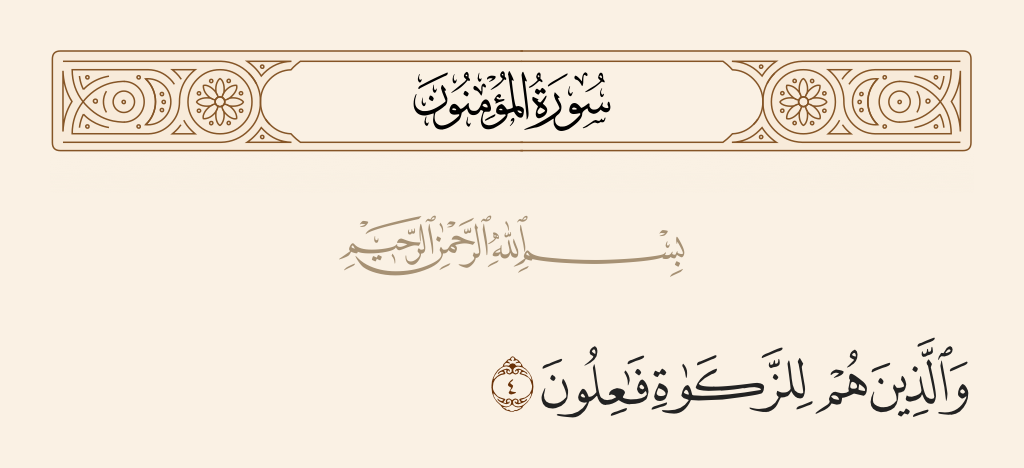 سُورَةُ المُؤْمِنُونَ
بِسْمِ ٱللَّهِ ٱلرَّحْمَٰنِ ٱلرَّحِيمِ
وَٱلَّذِينَ هُمْ لِلزَّكَوٰةِ فَٰعِلُونَ ٤